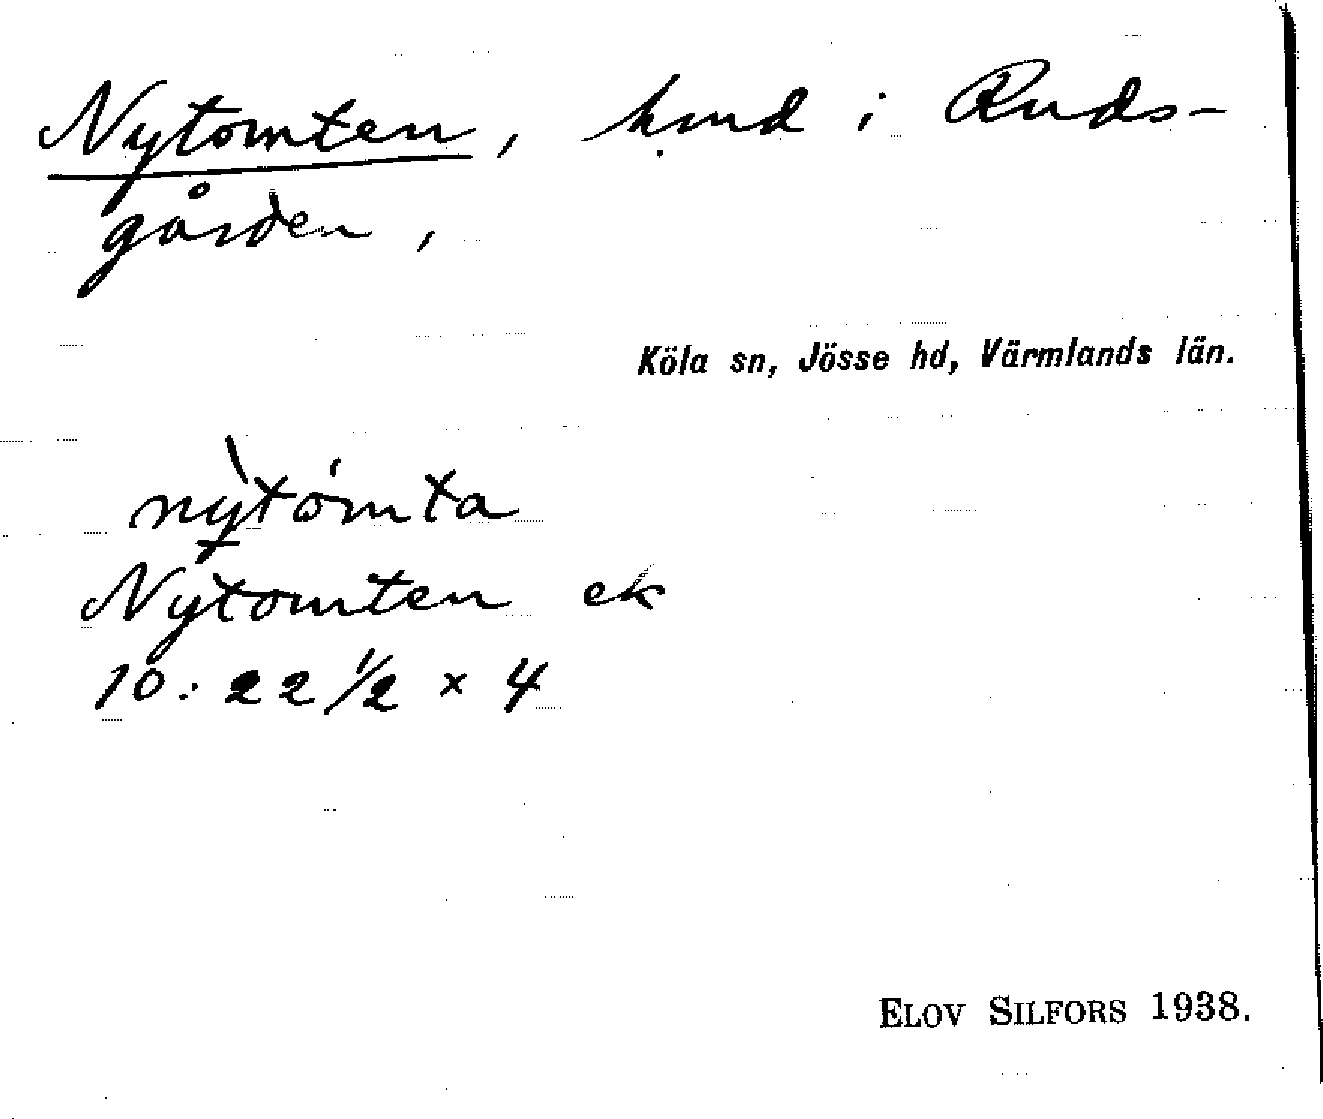 Nytomten, hmd i Ruds-
gården,
Köla sn, Jösse hd, Värmlands län.
nỳtómta
Nytomten ek
10:22 1/2 x 4
ELOV SILFORS 1938.